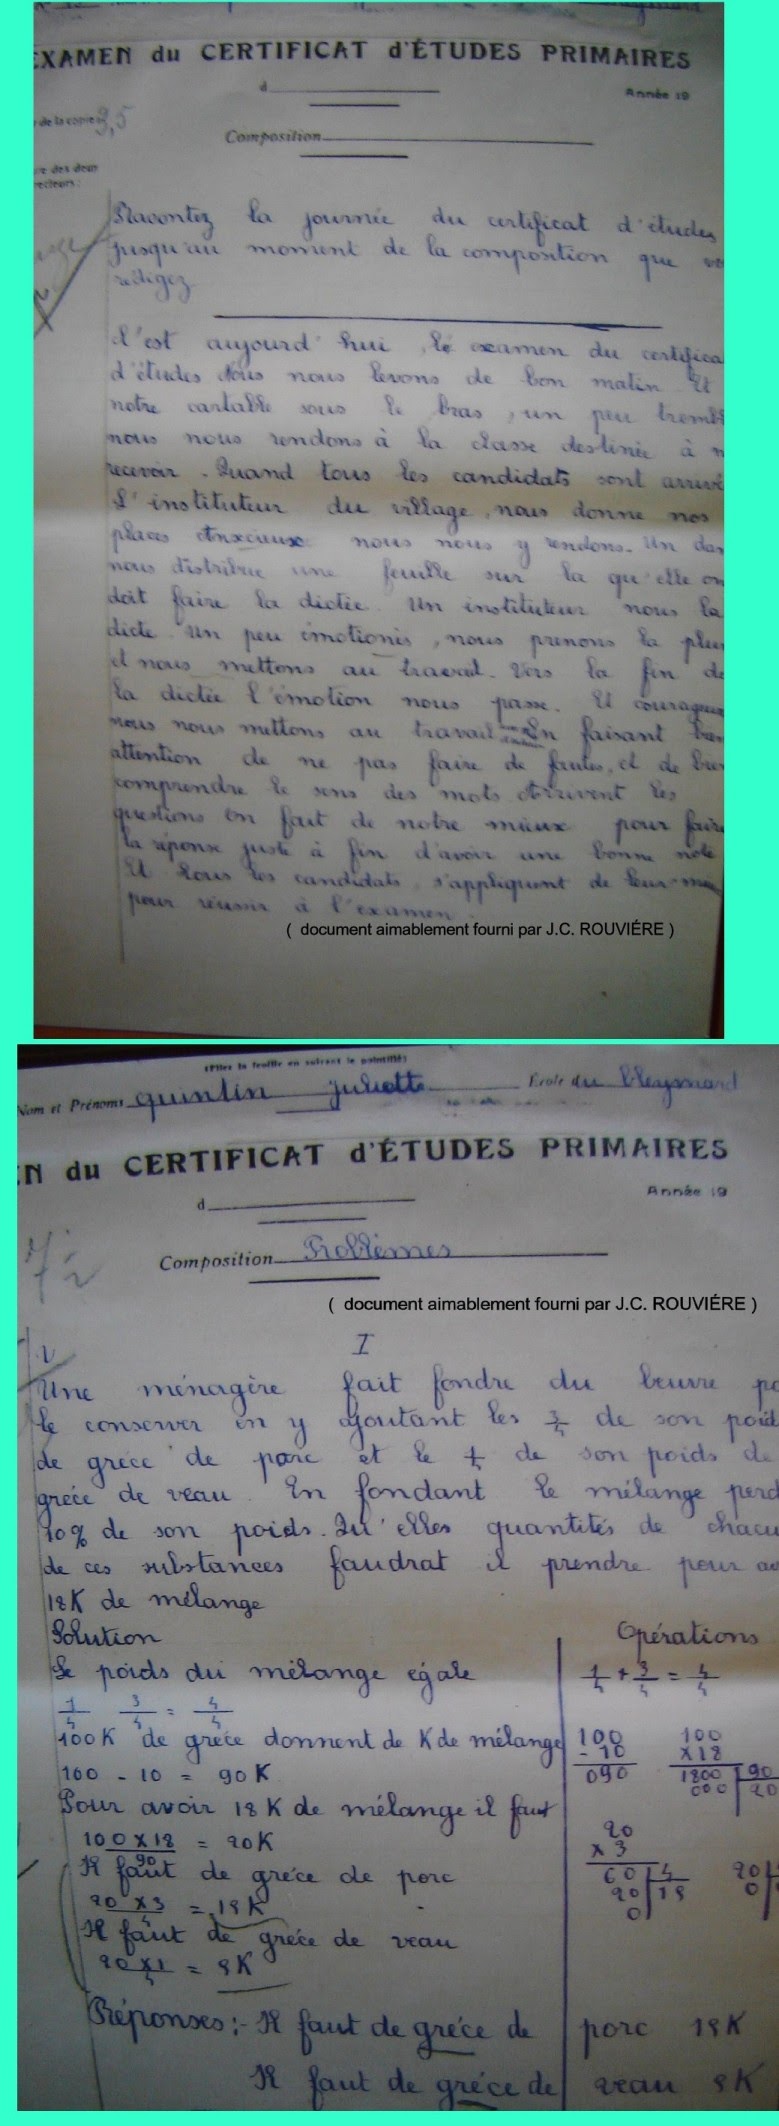 EXAMEN du CERTIFICAT d'ÉTUDES PRIMAIRES
d
Année 19
de la copie 3,5
Composition
re des deux
recteurs:
Racontez la journée du certificat d'études
jusqu'au moment de la composition que
rédigez
C'est aujourd'hui, le examen du certifica
d'études Nous nous levons de bon matin. Et
notre cartable sous le bras, un peu trembl
nous nous rendons à la classe destinée à n
recevoir. Quand tous les candidats sont arrivé
L'instituteur du village, nous donne nos
places Anxcieux nous nous y rendons. Un da
nous distribue une feuille sur la qu'elle on
doit faire la dictée. Un instituteur nous la
dicte. Un peu émotionés, nous prenons la plu
et nous mettons au travail. Vers la fin de
la dictée l'émotion nous passe. Et courageu
nous nous mettons au travail En faisant bie
attention de ne pas faire de fautes, et de bie
comprendre le sens des mots Arrivent les
questions on fait de notre mieux pour faire
la réponse juste à fin d'avoir une bonne note
Et tous les candidats, s'appliquent de leur
pour réussir à l'examen.
( document aimablement fourni par J.C. ROUVIÉRE )
(Plier la feuille en suivant le pointillé)
Nom et Prénoms Quintin Juliette École du Bleymard
EN du CERTIFICAT d'ÉTUDES PRIMAIRES
d
Année 19
Composition Problèmes
( document aimablement fourni par J.C. ROUVIÉRE )
I
Une ménagère fait fondre du beurre po
le conserver en y ajoutant les 3/4 de son poid
de gréce de porc et le 1/4 de son poids de
gréce de veau. En fondant le mélange perd
10% de son poids. Qu'elles quantités de chacu
de ces substances faudrat il prendre pour av
18K de mélange
Solution Opérations
Le poids du mélange égale 1/4 + 3/4 = 4/4
1/4 3/4 = 4/4
100K de gréce donnent de K de mélange 100 100
- 10 x 18
100 - 10 = 90K 090 1800 90
000 20
Pour avoir 18K de mélange il faut
100 x 18 / 90 = 20K 20
x 3
Il faut de gréce de porc 60 4 20
20 x 3 / 4 = 15K 20 15 0
0
Il faut de gréce de veau
20 x 1 / 4 = 5K
Réponses:- Il faut de gréce de porc 15K
Il faut de gréce de veau 5K